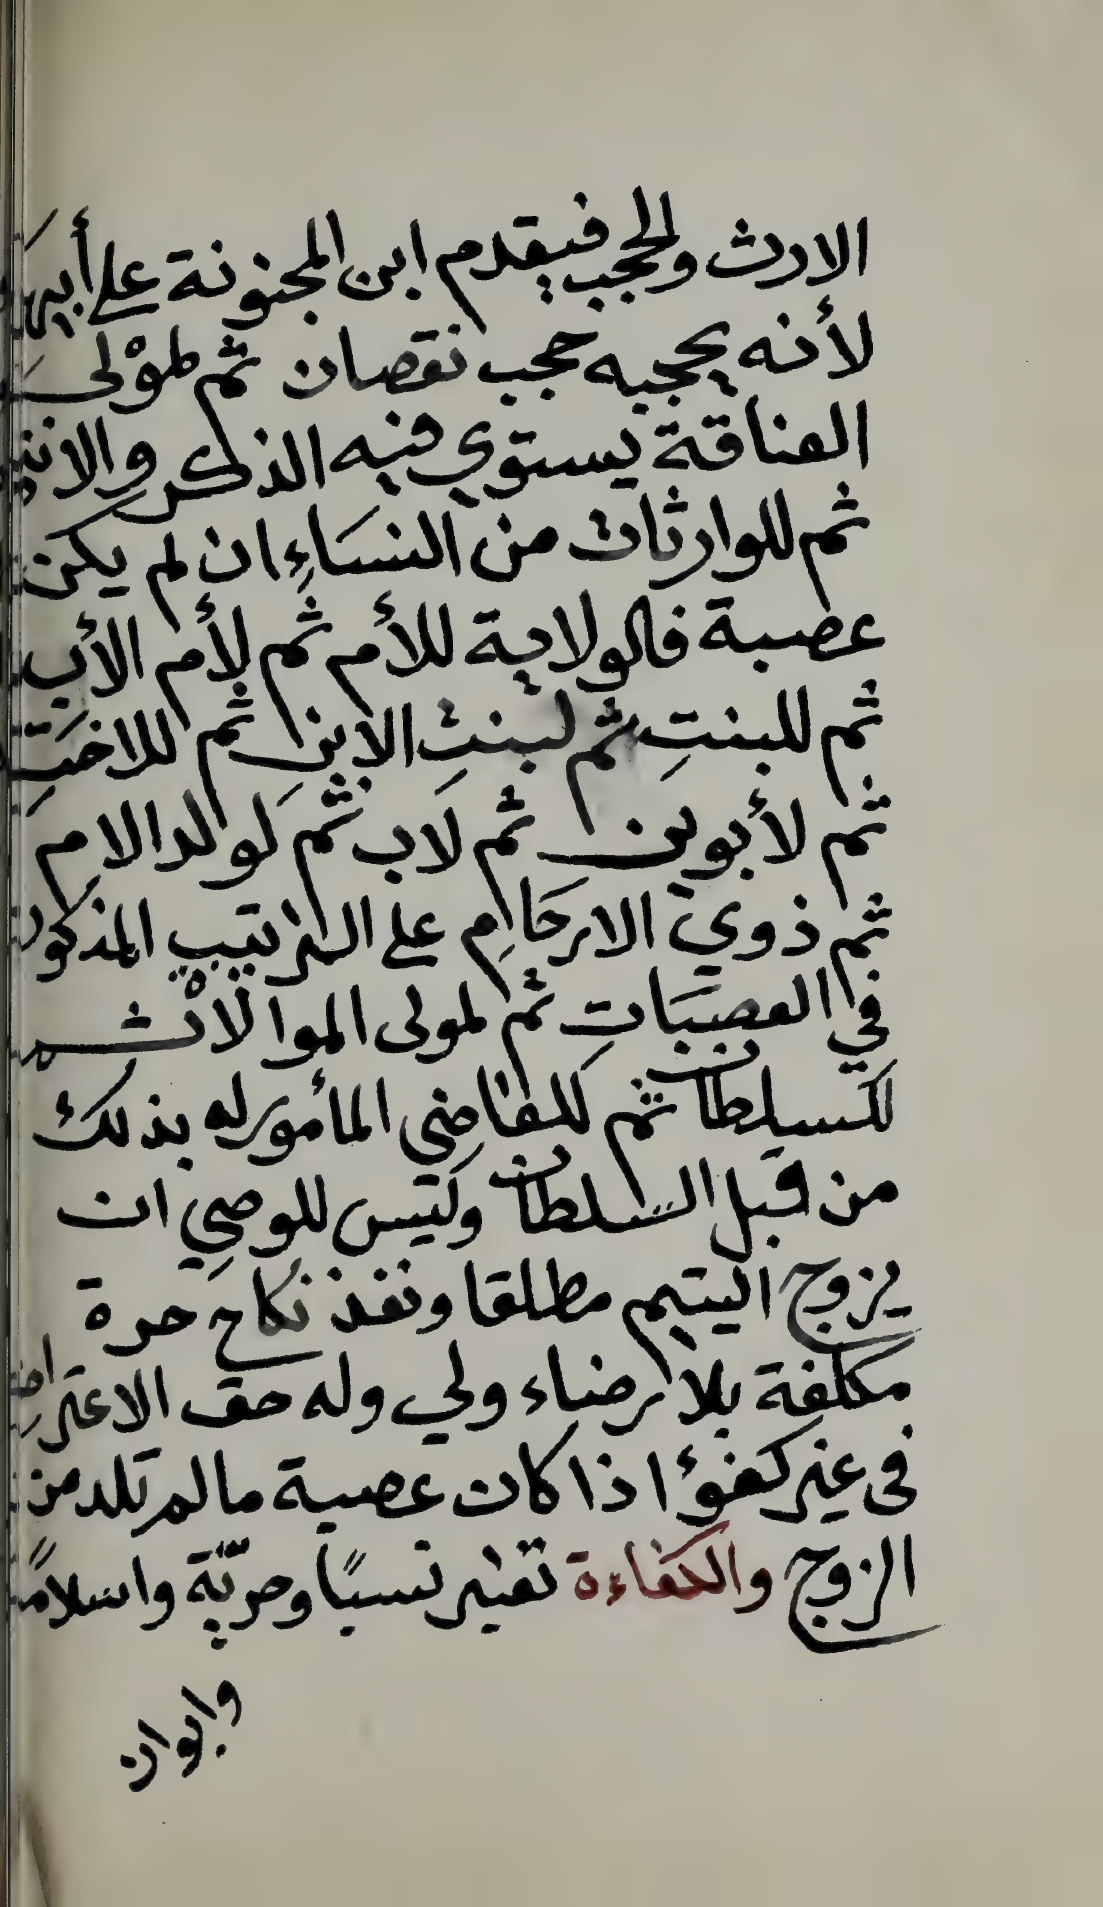 الارث والحجب فيقدم ابن المجنونة على أبيها
لأنه يحجبه حجب نقصان ثم لمؤلى
العتاقة يستوي فيه الذكر والانثى
ثم للوارثات من النسَاءِ ان لم يكن
عصبة فالولاية للأم ثم لأم الأب
ثم للبنتِ ثم لبنتِ الابنِ ثم للاختِ
ثم لأبوين ثم لاب ثم لولد الام
ثم ذوي الارحَامِ على الترتيب المذكور
في العصبَاتِ ثم لمولى الموالاْت ثم
لسلطان ثم للقاضي المأمور له بذلك
من قبل السلطان وليس للوصي ان
يزوج اليتيم مطلقا ونفذ نكاح حرة
مكلفة بلا رضاء ولي وله حق الاعتراض
في غير كفؤ اذا كان عصبة مالم تلد من
الزوج والكفاءة تعتبر نسبًا وحريّة واسلامًا
وابوان